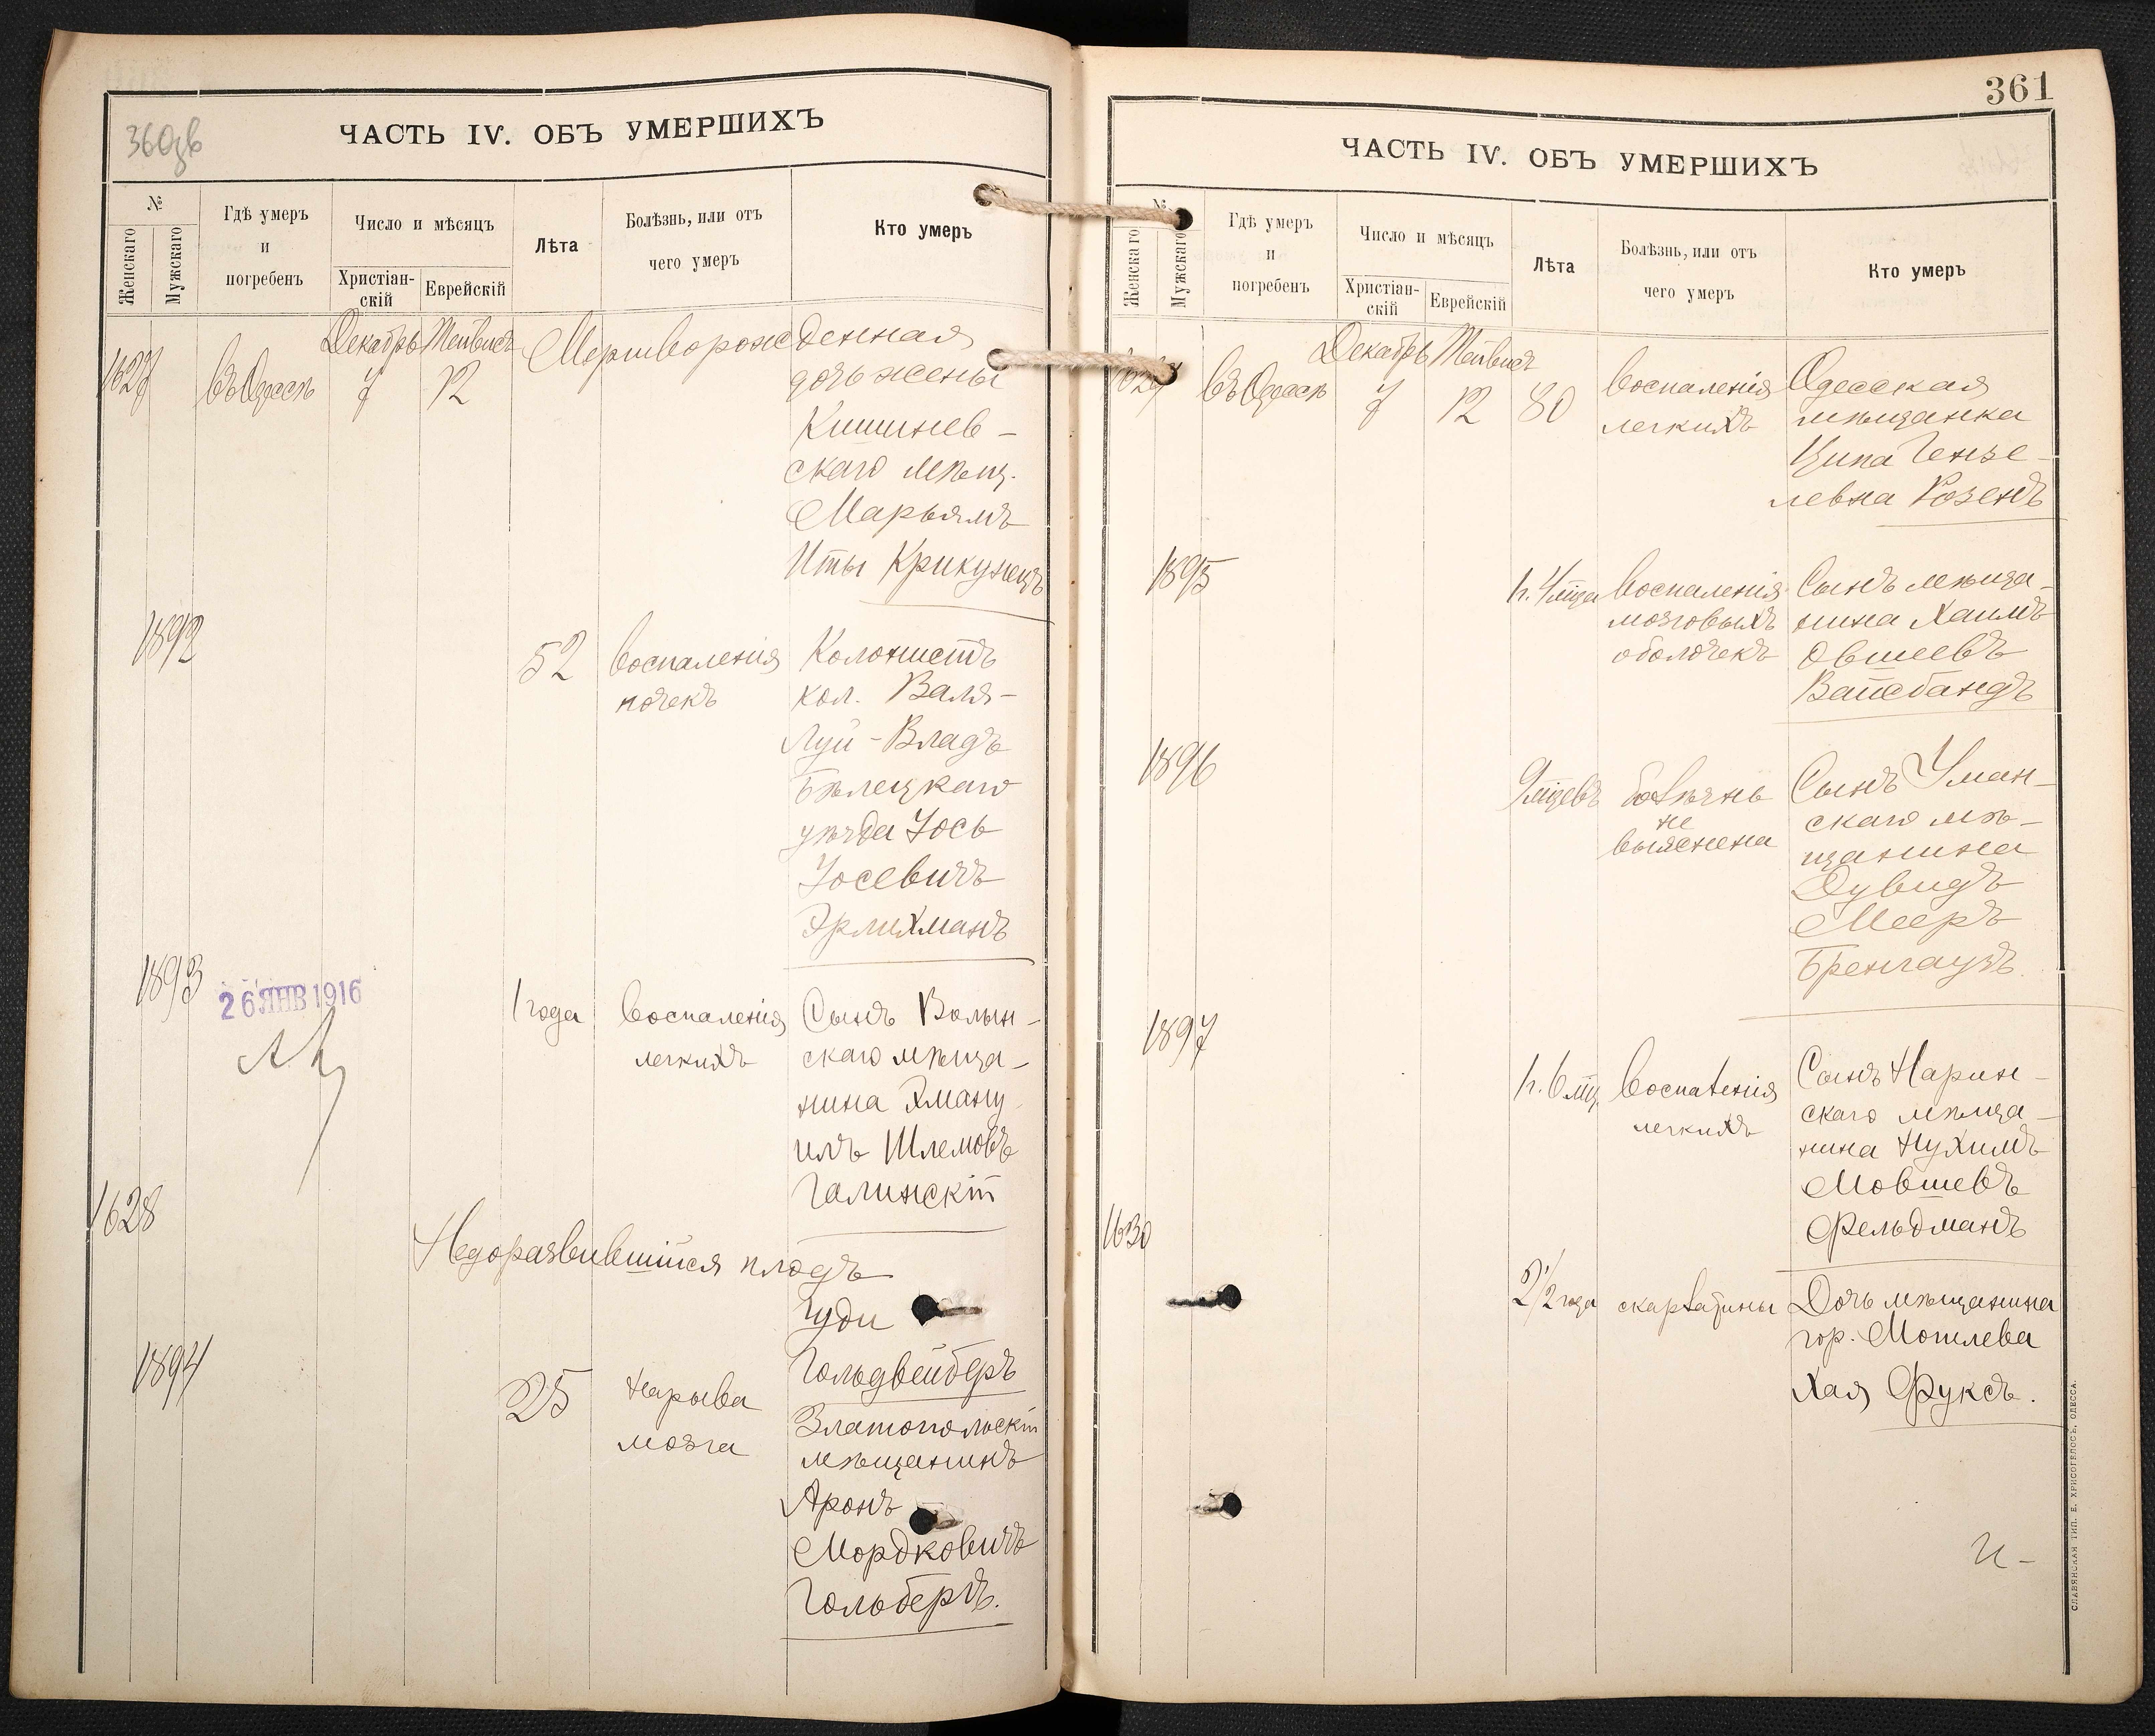 360зв
ЧАСТЬ IV. ОБЪ УМЕРШИХЪ
№
Женскаго
Мужскаго
Гдѣ умеръ
и
погребенъ
Число и мѣсяцъ
Христіан-
скій
Еврейскій
Лѣта
Болѣзнь, или отъ
чего умеръ
Кто умеръ
Декабрь Тейвисъ
1627 въ Одессѣ 7 12 Мертворожденная
дочь жены
Кишинев-
скаго мѣщ.
Марьямъ
Иты Крикунецъ
1892
52 воспаленія
почекъ
Колонистъ
кол. Валя-
Луй-Владъ
Бѣлецкаго
уѣзда Іось
Іосевичъ
Эрлихманъ
1893
26 ЯНВ 1916
1 года воспаленія
легкихъ
Сынъ Волын-
скаго мѣща-
нина Эману
илъ Шлемовъ
Галинскій
1628
Недоразвившійся плодъ
Гуди
Гольдвейберъ
1894
25 нарыва
мозга
Златопольскій
мѣщанинъ
Аронъ
Мордковичъ
Гольбергъ.
361
ЧАСТЬ IV. ОБЪ УМЕРШИХЪ
№
Женскаго
Мужскаго
Гдѣ умеръ
и
погребенъ
Число и мѣсяцъ
Христіан-
скій
Еврейскій
Лѣта
Болѣзнь, или отъ
чего умеръ
Кто умеръ
Декабрь Тейвисъ
1629 въ Одессѣ 7 12 80 воспаленія
легкихъ
Одесская
мѣщанка
Ципа Гензе-
левна Розенъ
1895
1 г. 4 мца воспаленія
мозговыхъ
оболочекъ
Сынъ мѣща-
нина Хаимъ
Овшеевъ
Вайсбандъ
1896
9 мцевъ болѣзнь
не
выяснена
Сынъ Уман-
скаго мѣ-
щанина
Дувидъ
Мееръ
Бренгаузъ.
1897
1 г. 6 мц. воспаленія
легкихъ
Сынъ Нарин-
скаго мѣща-
нина Нухимъ
Мовшевъ
Фельдманъ
1630
2 1/2 года скарлатины
Дочь мѣщанина
гор. Могилева
Хая Фуксъ.
СЛАВЯНСКАЯ ТИП. Е. ХРИСОГЕЛОСЪ, ОДЕССА.